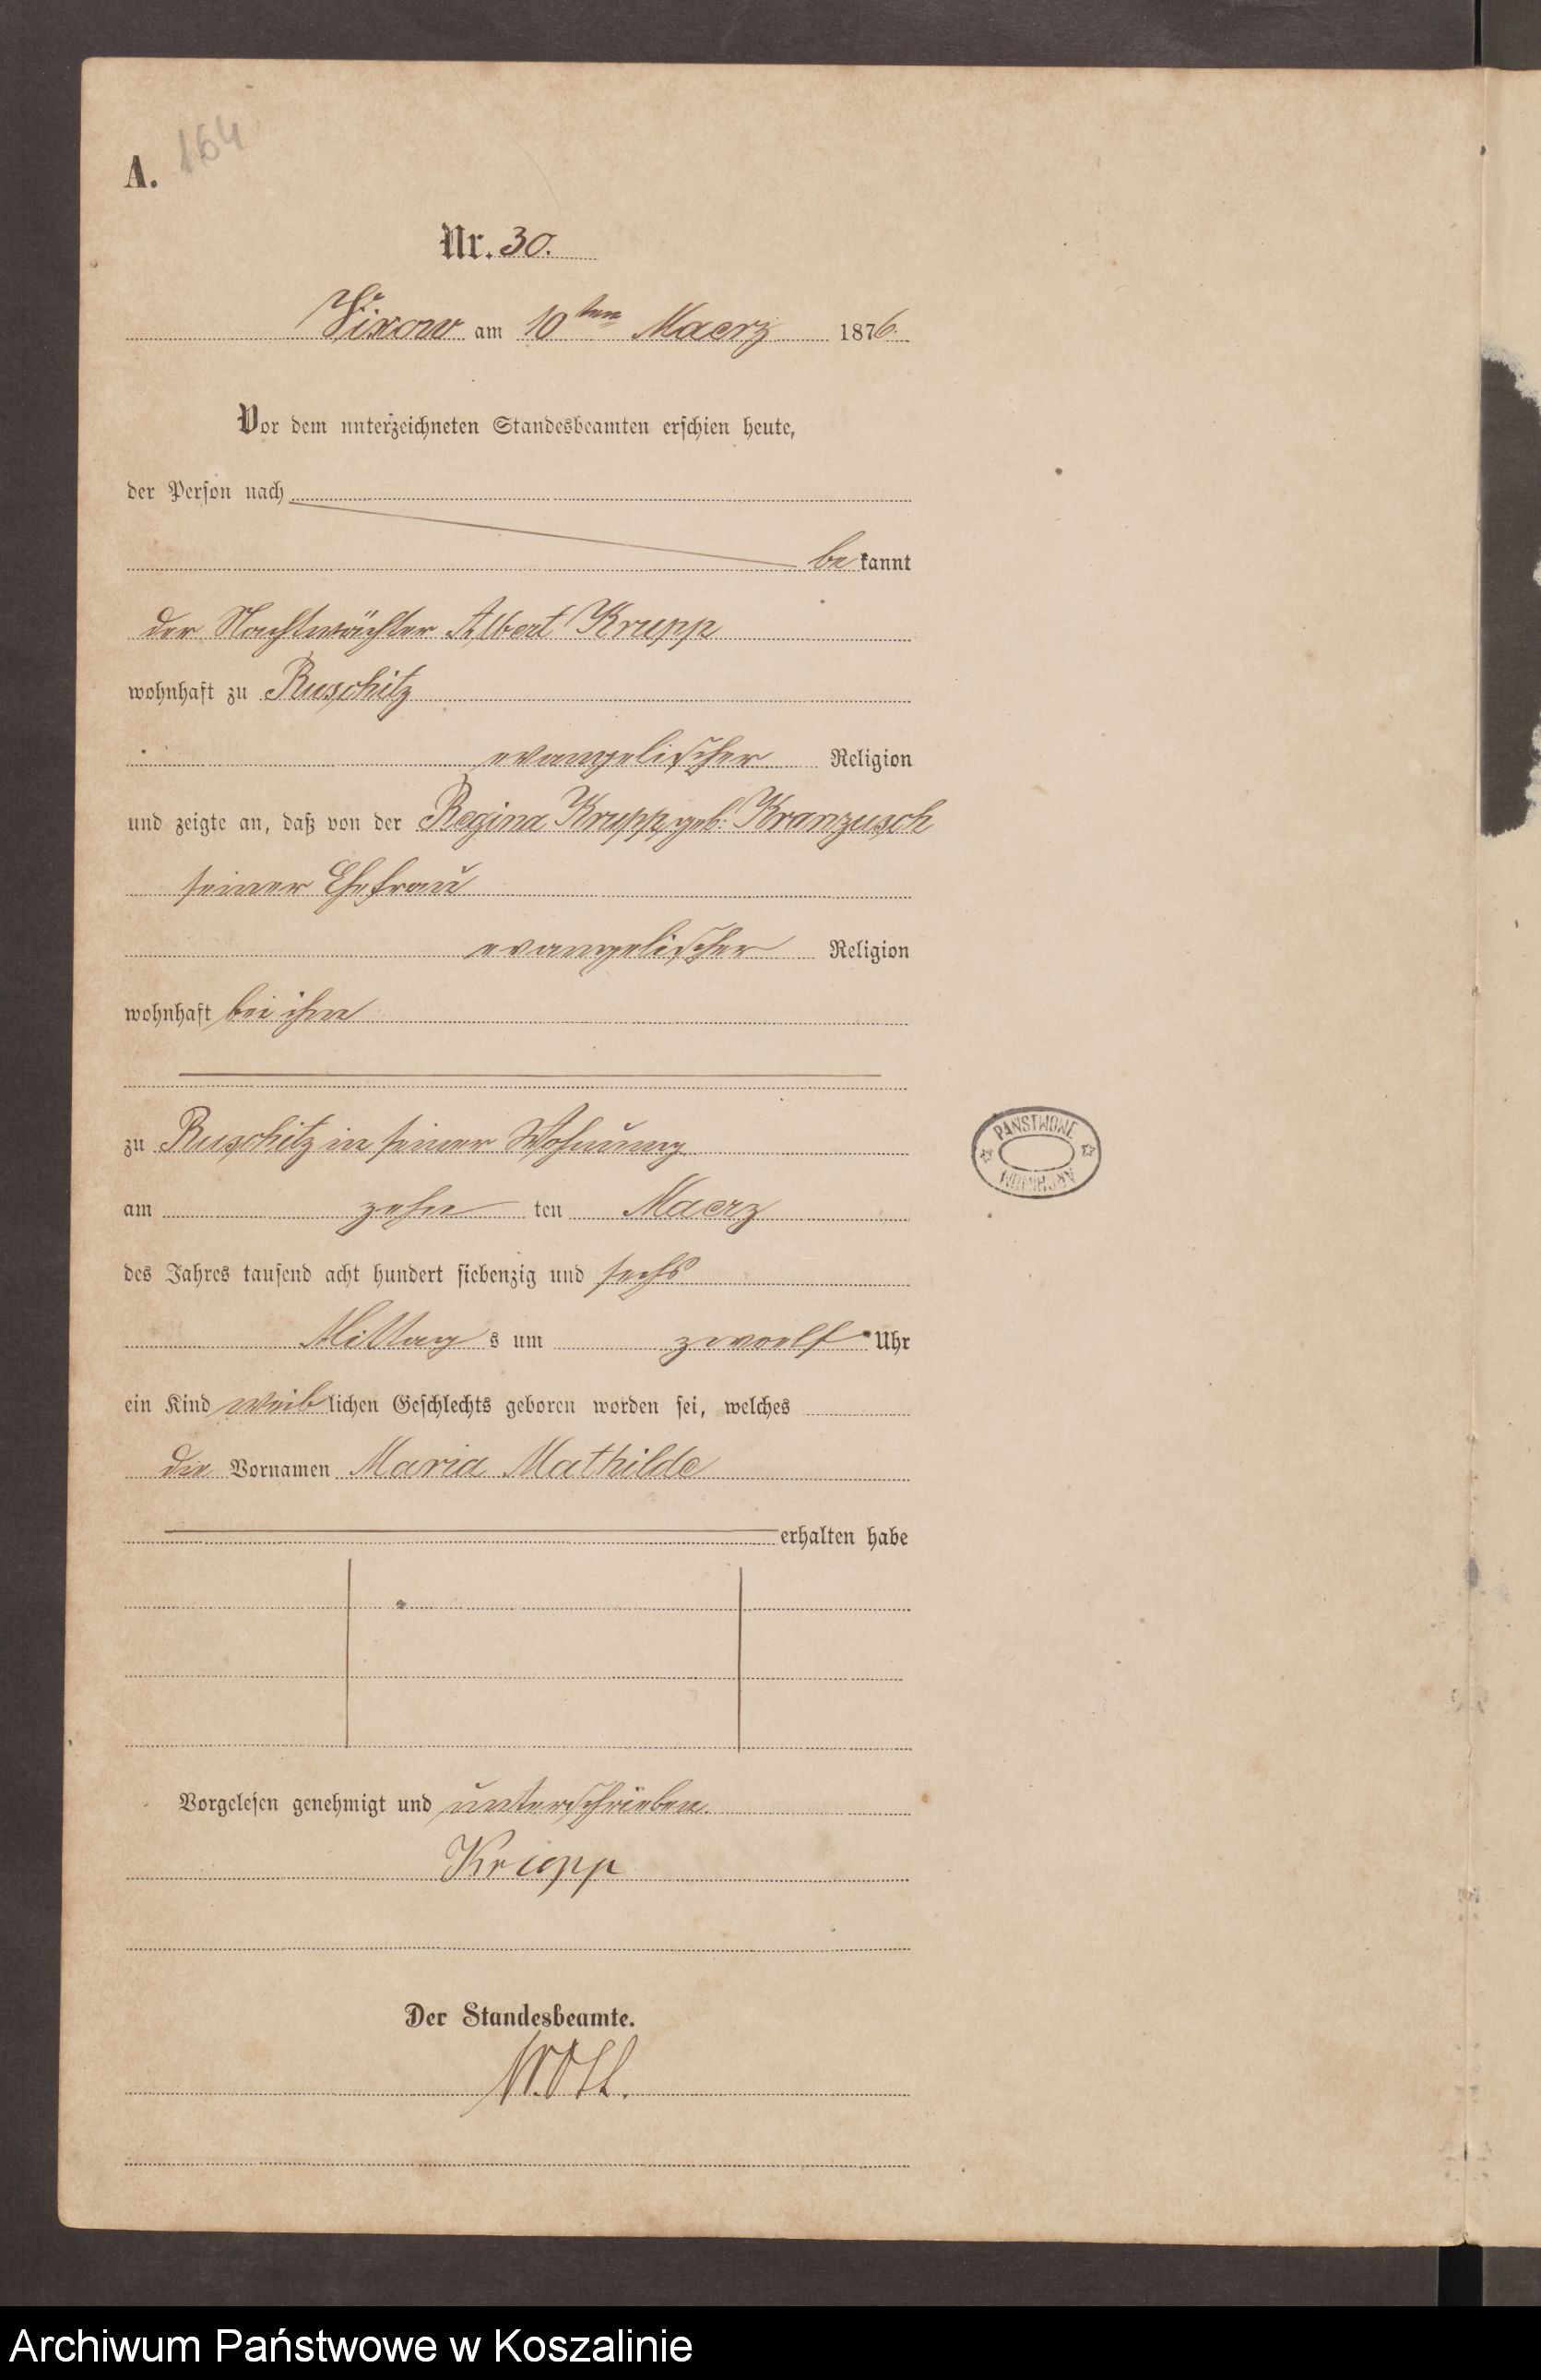 164
A.
Nr. 30.
Vixow am 10ten Maerz 1876.
Vor dem unterzeichneten Standesbeamten erschien heute,
der Person nach
bekannt
der Nachtwächter Albert Krupp
wohnhaft zu Ruschitz
evangelischer Religion
und zeigte an, daß von der Regina Krupp, geb. Kranzusch
seiner Ehefrau
evangelischer Religion
wohnhaft bei ihm
zu Ruschitz in seiner Wohnung
am zehn ten Maerz
des Jahres tausend acht hundert siebenzig und sechs
Mittag s um zwoelf Uhr
ein Kind weiblichen Geschlechts geboren worden sei, welches
die Vornamen Maria Mathilde
erhalten habe
Vorgelesen genehmigt und unterschrieben.
Krupp
Der Standesbeamte.
PAŃSTWOWE
ARCHIWUM
Archiwum Państwowe w Koszalinie